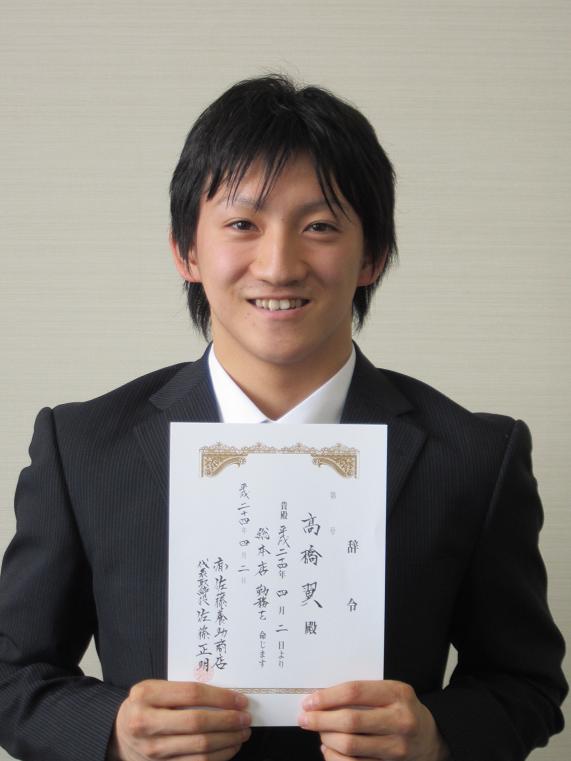 辞令
第 号
高橋翼殿
貴殿 平成二十四年 四月 二日より
総本店 勤務を 命じます
平成 二十四年 四月 二日
㈲佐藤養助商店
代表取締役 佐藤正明